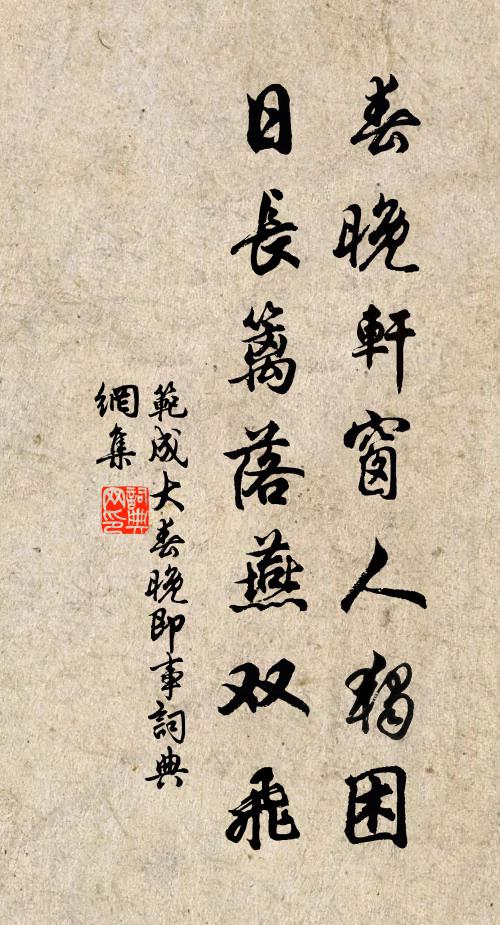 春晚軒窗人獨困
日長籬落燕双飛
範成大春晚即事詞典
網集
詞典
网印